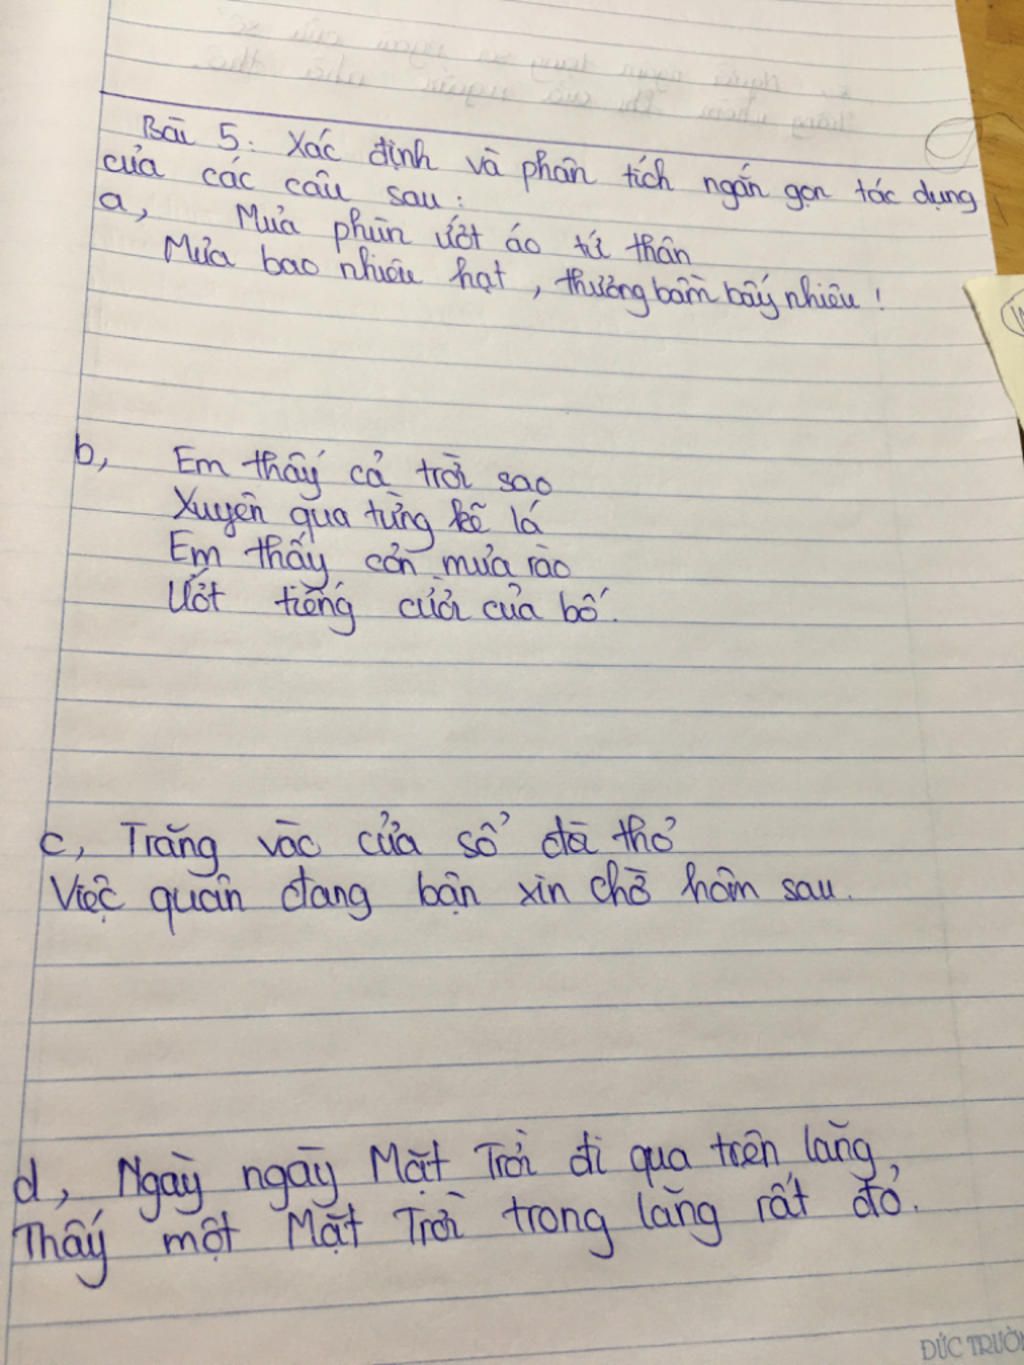 Bài 5: Xác định và phân tích ngắn gọn tác dụng
của các câu sau:
a, Mưa phùn ướt áo tứ thân
Mưa bao nhiêu hạt, thương bầm bấy nhiêu!
b, Em thấy cả trời sao
Xuyên qua từng kẽ lá
Em thấy cơn mưa rào
Ướt tiếng cười của bố.
c, Trăng vào cửa sổ đòi thơ
Việc quân đang bận xin chờ hôm sau.
d, Ngày ngày Mặt Trời đi qua trên lăng,
Thấy một Mặt Trời trong lăng rất đỏ.